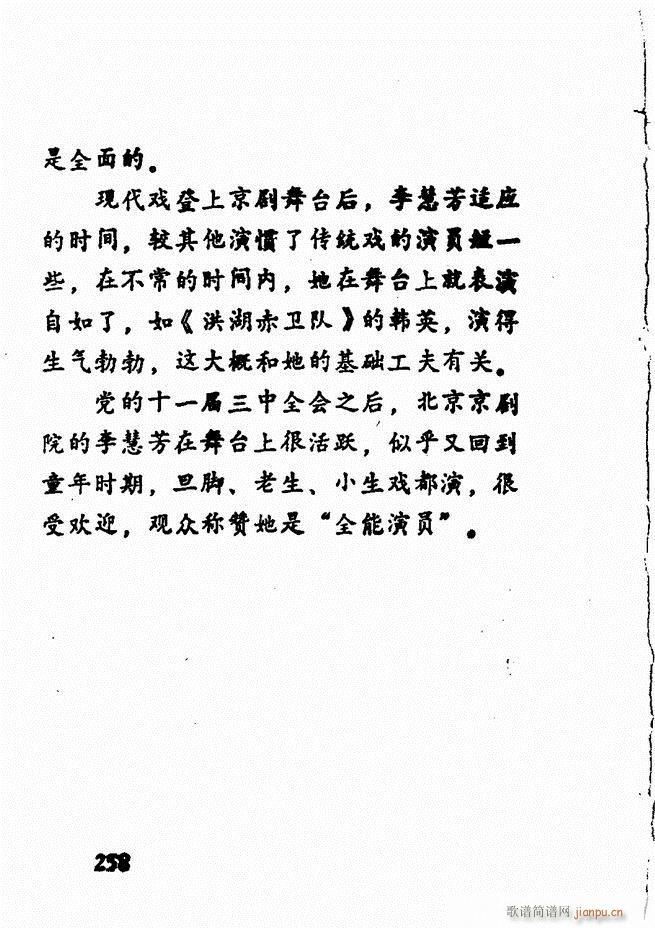 是全面的。
现代戏登上京剧舞台后，李慧芳适应
的时间，较其他演惯了传统戏的演员短一
些，在不常的时间内，她在舞台上就表演
自如了，如《洪湖赤卫队》的韩英，演得
生气勃勃，这大概和她的基础工夫有关。
党的十一届三中全会之后，北京京剧
院的李慧芳在舞台上很活跃，似乎又回到
童年时期，旦脚、老生、小生戏都演，很
受欢迎，观众称赞她是“全能演员”。
258
歌谱简谱网 jianpu.cn